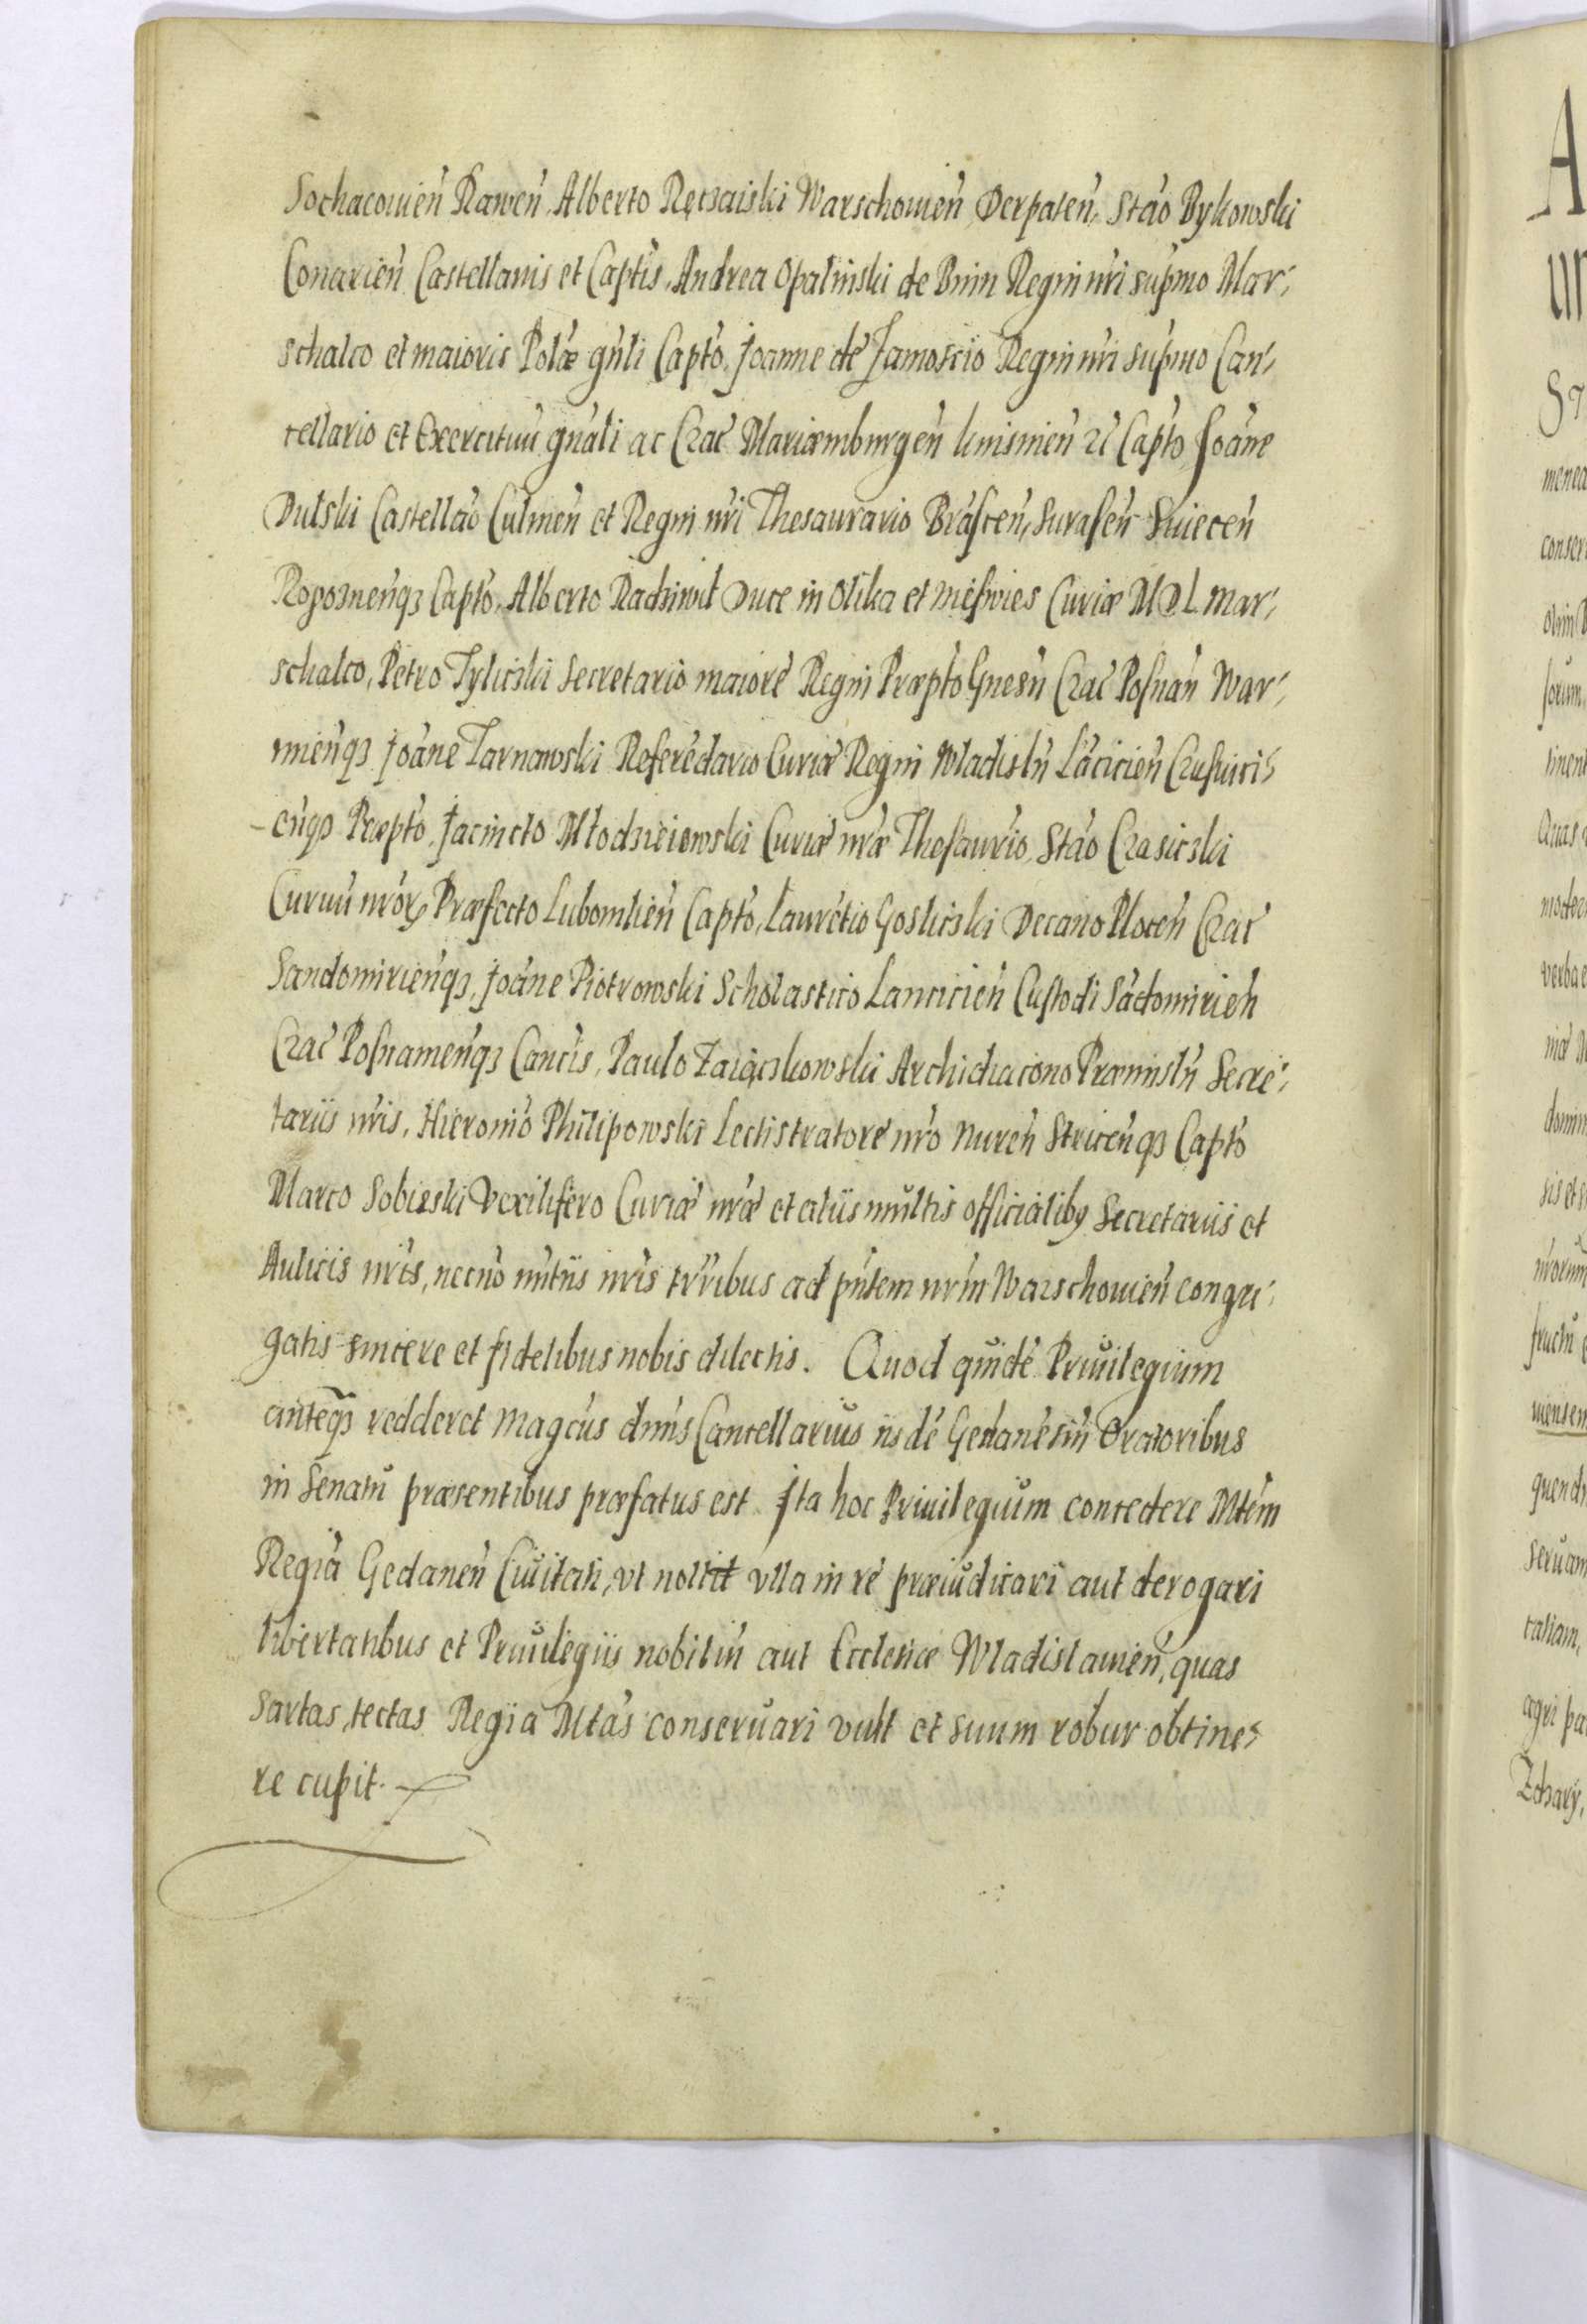 Sochacouień Raweń, Alberto Ręczaiski Warschouień Derpateń, Stão Bykowski
Conarień Castellanis et Captis, Andrea Opalinski de Bnin Regni nri supmo Mar-
schalco et maioris Polæ gnli Capto, Joanne de Zamoscio Regni nri supmo Can-
cellario et Exercituu gnali ac Crac Mariæmburgeń knisnień zc Capto Joane
Dulski Castellão Culmeń et Regni nri Thesaurario Brasceń, Suraseń Suieceń
Rogoznenqȝ Capto, Alberto Radziwil Duce in Olika et niesuies Curiæ M D L Mar-
schalco, Petro Tylicski Secretario maiore Regni Præpto Gnesn Crac Posnan War-
mienqȝ Joane Tarnowski Referedario Curiæ Regni Wladisln Lacicień Crusuici-
enqȝ Præpto, Jacincto Młodzieiowski Curiæ nræ Thesaurio, Stão Crasicski
Curuu nror Præfecto Lubomlień Capto, Lauretio Goslicski Decano Ploceń Crac
Sandomirienqȝ, Joane Piotrowski Scholastico Lancicień Custodi Sadomirień
Crac Posnamenqȝ Cancis, Paulo Zaiączkowski Archidiacono Præmisln Secre-
tariis nris, Hieronio Philipowski Lectistratore nro Nureń Stricenqȝ Capto
Marco Sobieski Vexilifero Curiæ nræ et aliis multis officialibȝ Secretariis et
Aulicis nris, necno nutiis nris trribus ad pntem nrm Warschouień congre-
gatis sincere et fidelibus nobis dilectis. Quod quidē Priuilegium
anteqȝ redderet Magcus dnus Cancellarius iisdē Gedanēsiu Oratoribus
in Senatu præsentibus præfatus est Ita hoc Priuilegium concedere Mtem
Regiā Gedaneń Ciuitati, vt nolit vlla in rē præiudicari aut derogari
libertatibus et Priuilegiis nobiliu aut Ecclesiæ Wladislauień, quas
sartas tectas Regia Mtas conseruari vult et suum robur obtine-
re cupit.